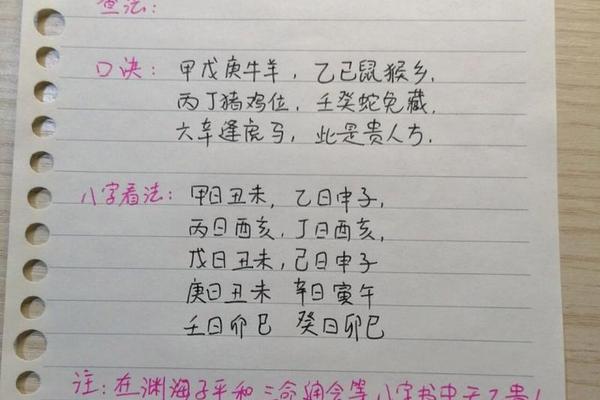 查法：
口决：甲戊庚牛羊，乙己鼠猴乡，
丙丁猪鸡位，壬癸蛇兔藏，
六辛逢虎马，此是贵人方．
八字看法：甲日丑未，乙日申子，
丙日酉亥，丁日酉亥，
戊日丑未，己日申子
庚日丑未 辛日寅午
壬日卯巳 癸日卯巳
注：在渊海子平和三命通会等八字书中天乙贵人